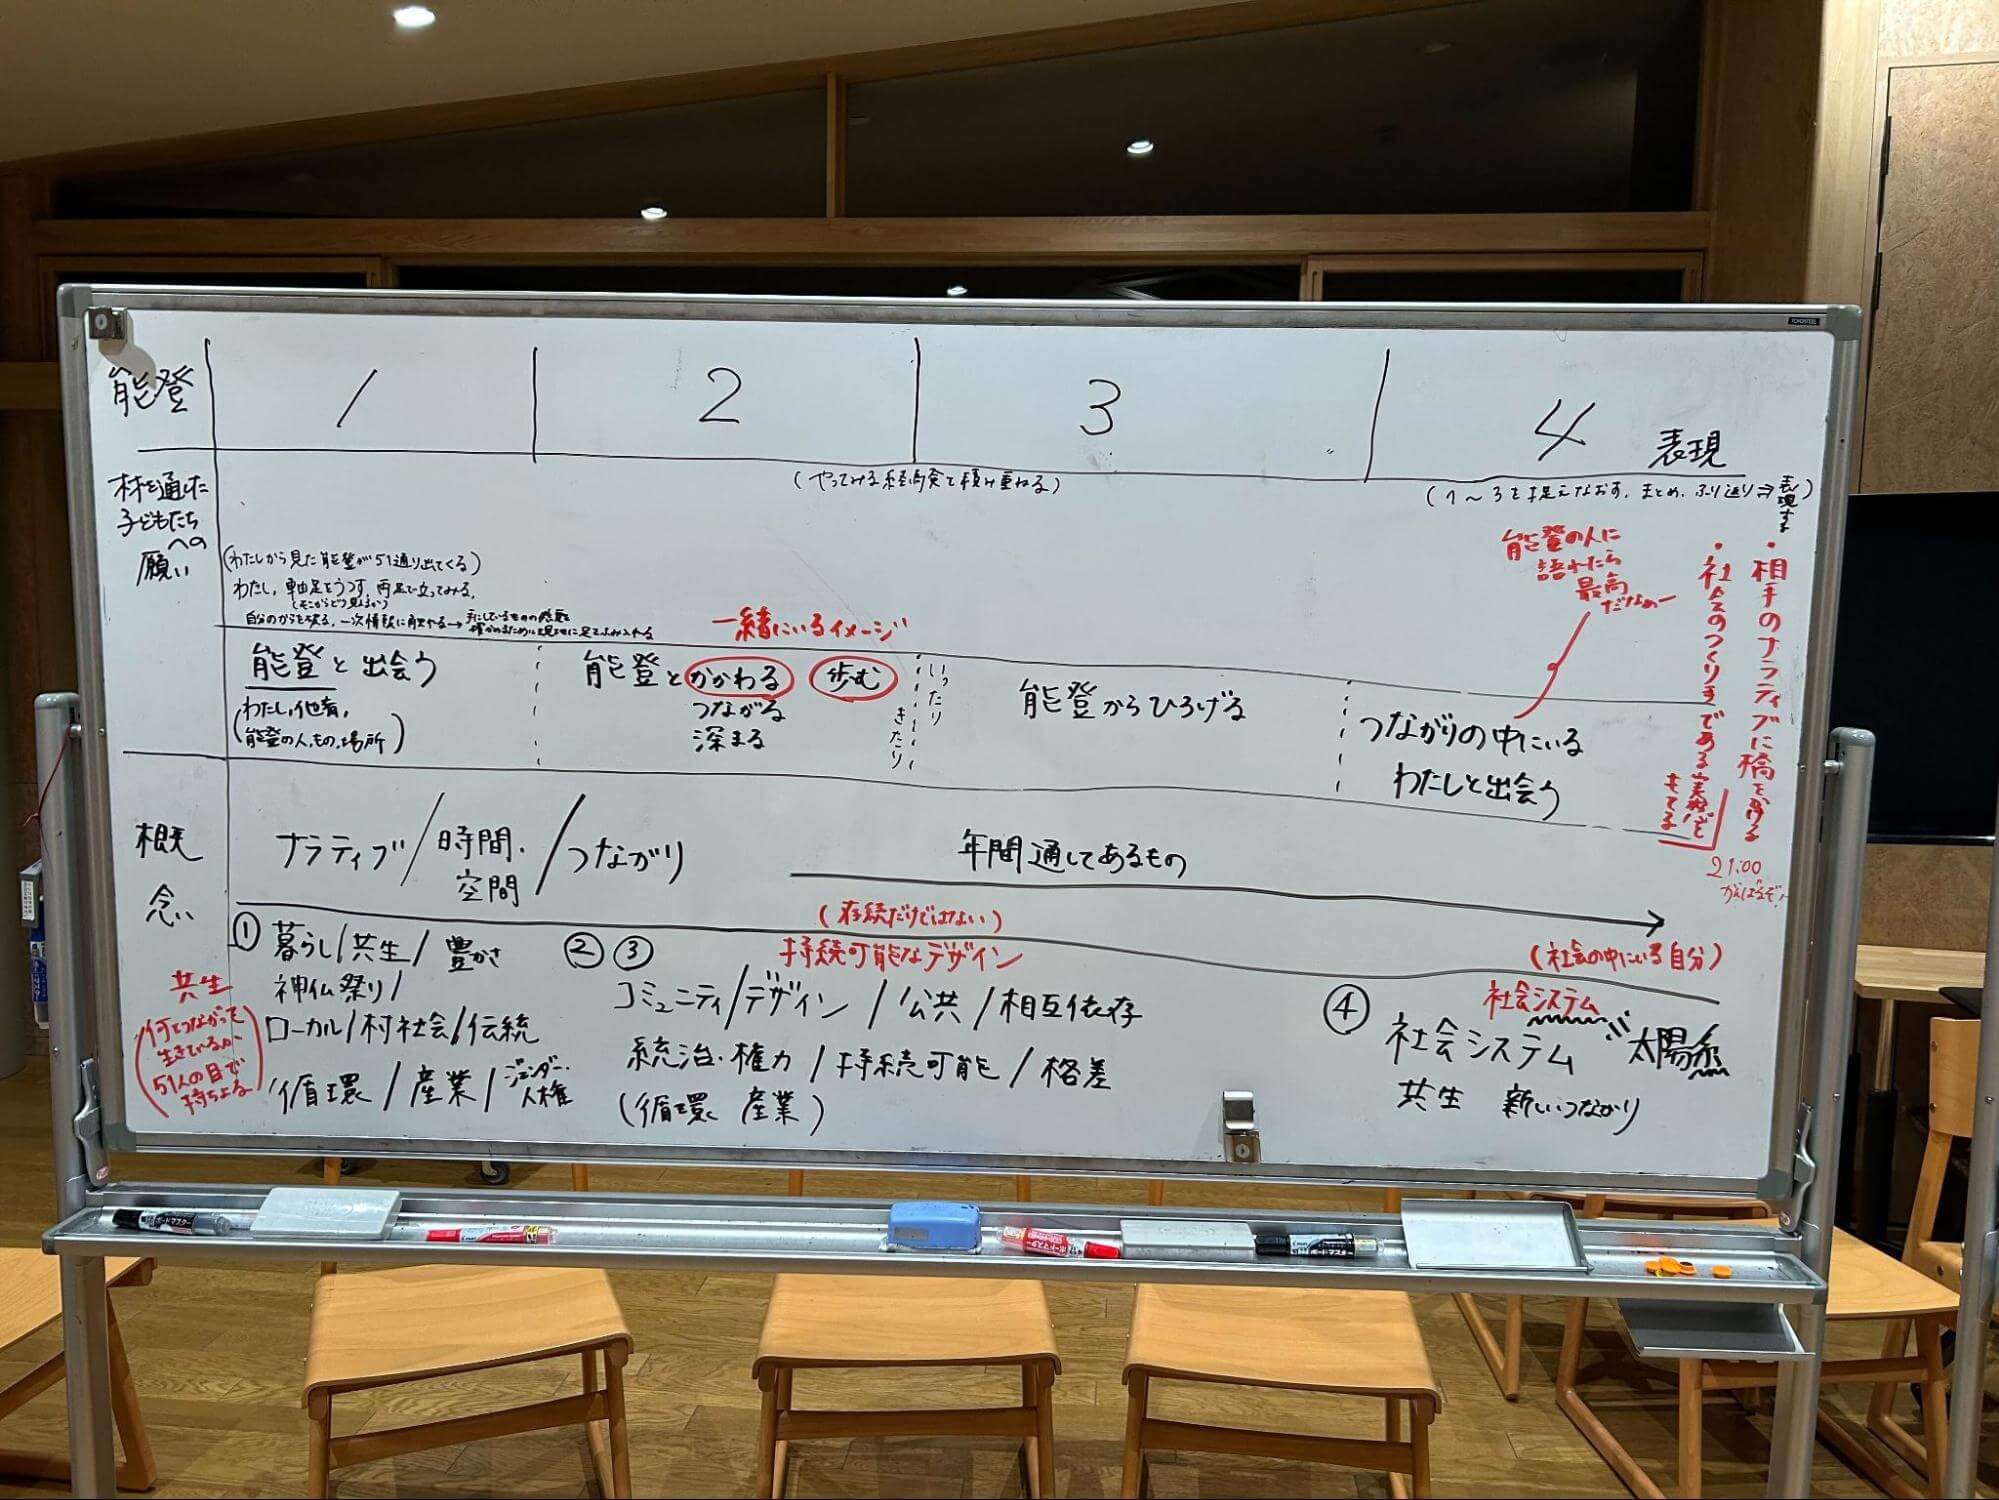 能登
1
2
3
4
表現
材を通した
子どもたち
への
願い
(やってみる 経験 積み重ねる)
(1〜3を捉えなおす、まとめ、ふり返り⇒表現する)
(わたしから見た能登が51通り出てくる)
わたし、軸足をうつす、両足で立ってみる、
(そこからどう見えるか)
自分のからを破る、一次情報に触れる→
一緒にいるイメージ
能登の人に
語れたら
最高
だなぁー
・相手のナラティブに橋を架ける
・社会のつくり手である実感を
もてる
能登と出会う
(わたし、他者、
能登の人、もの、場所)
能登とかかわる 歩む
つながる
深まる
いったり
きたり
能登からひろげる
つながりの中にいる
わたしと出会う
21:00
がんばるぞ!
概念
ナラティブ/時間・空間/つながり
年間通してあるもの
①暮らし/共生/豊かさ
神仏祭り/
ローカル/村社会/伝統
循環/産業/ジェンダー・人権
共生
(何とつながって
生きているか、
51人の目で
持ちよる)
②③
(存続だけではない)
持続可能なデザイン
コミュニティ/デザイン/公共/相互依存
統治・権力/持続可能/格差
(循環 産業)
(社会の中にいる自分)
社会システム
④
社会システム 太陽系
共生 新しいつながり